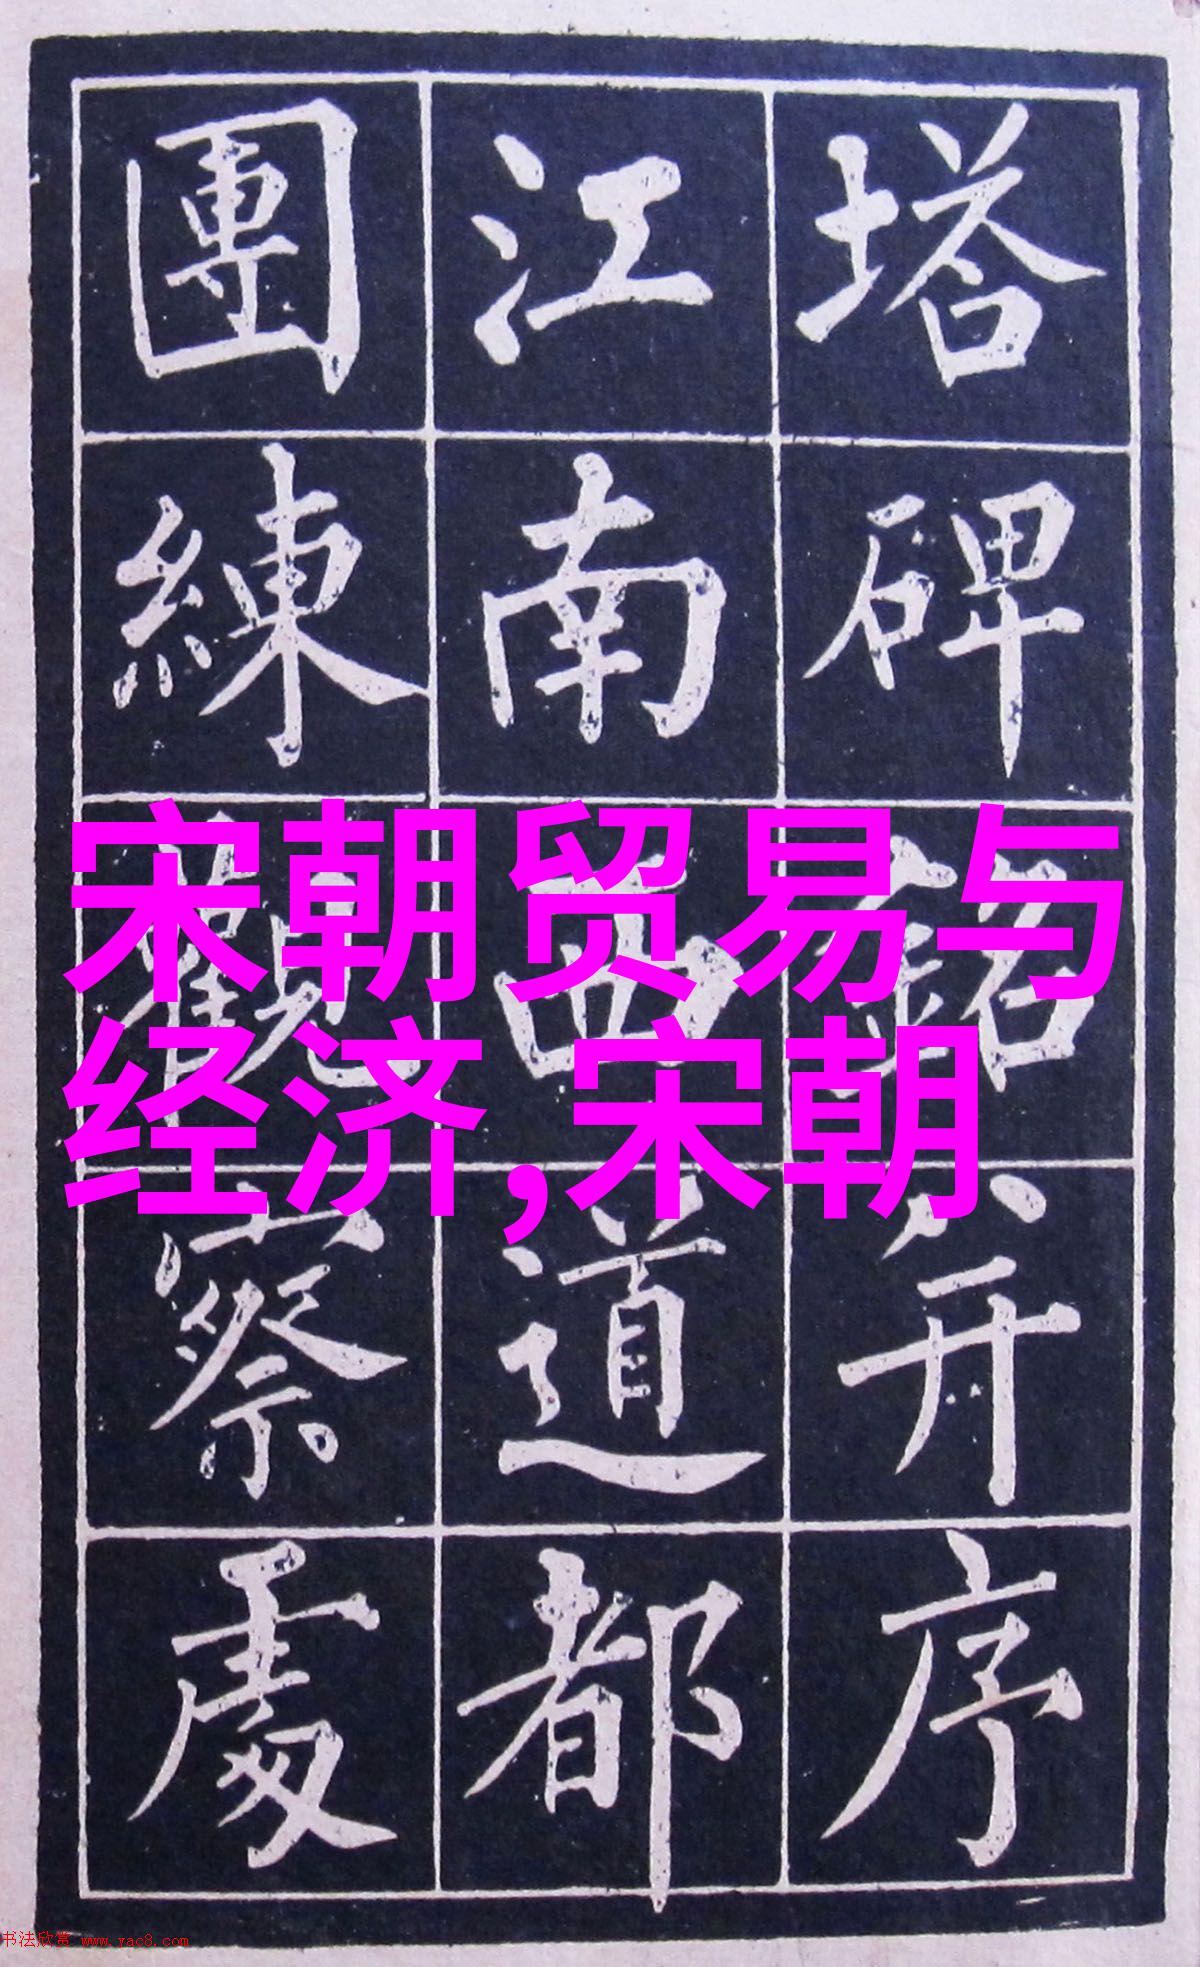 塔碑銘并序
江南西道都
團練觀察處
宋朝贸易与
经济,宋朝
书法欣赏 www.yac8.com